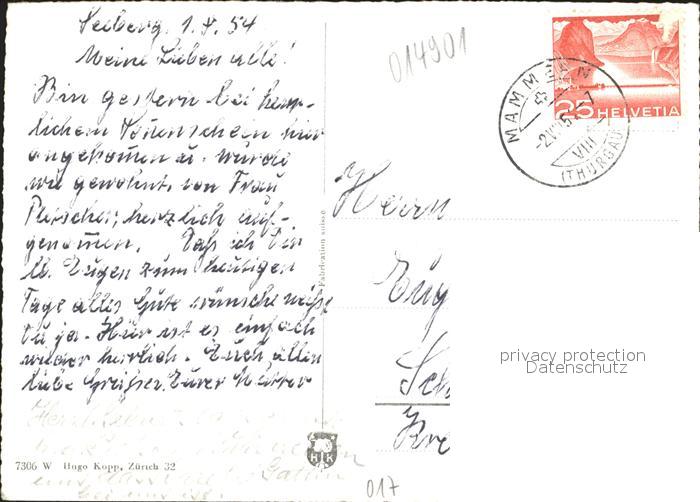 Seeberg, 1.V.54
Meine Lieben alle!
Bin gestern bei herr-
lichem Sonnenschein hier
angekommen u. wurde
wie gewohnt, von Frau
herzlich auf-
genommen. Daß ich Dir
lb. Eugen zum heutigen
Tage alles Gute wünsche weißt
Du ja. Hier ist es einfach
wieder herrlich. Euch allen
liebe Grüsse Eurer Mutter
7306 W Hugo Kopp, Zürich 32
Fabrication suisse
HK
014901
MAMMERN
VIII
(THURGAU)
25 HELVETIA
Herrn
Eug
Sch
Kre
privacy protection
Datenschutz
017